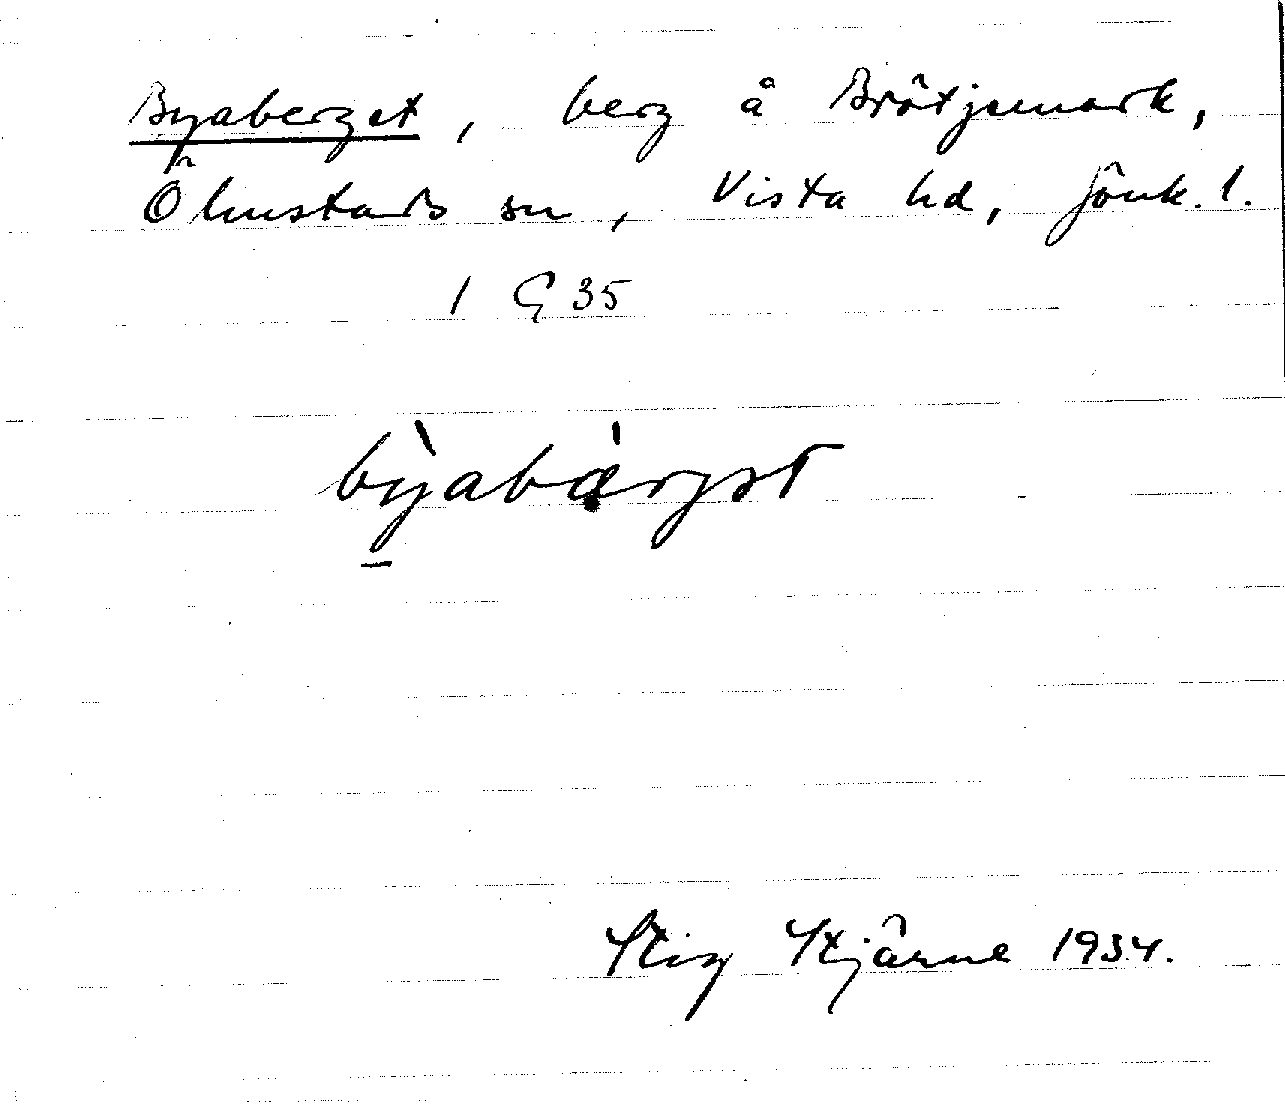 Byaberget, berg å Brötjemark,
Ölmstads sn, Vista hd, Jönk. l.
1 G 35
bỳabárgət
Stig Stjärne 1934.